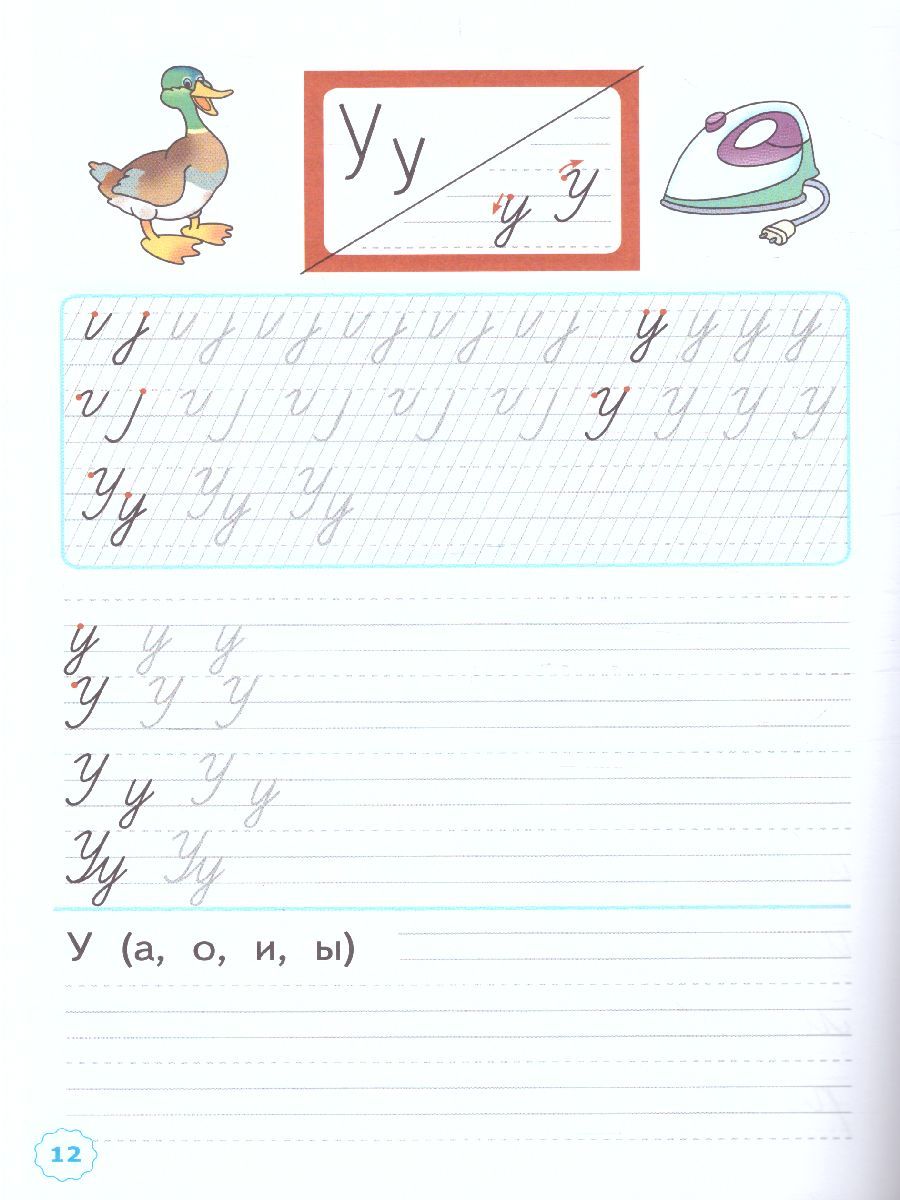 У у
у У
у у у у
У У У У
Уу Уу Уу
у у у
У У У
У у У у
Уу Уу
У (а, о, и, ы)
12